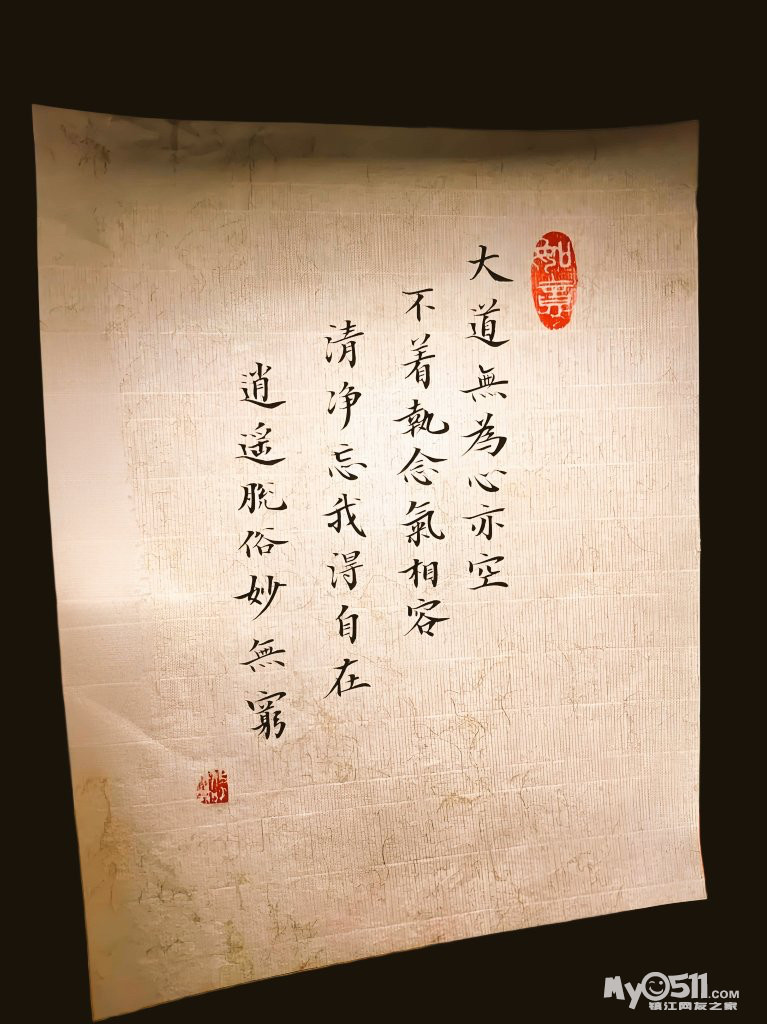 大道無為心亦空
不着執念氣相容
清净忘我得自在
逍遥脫俗妙無窮
My0511.COM
镇江网友之家